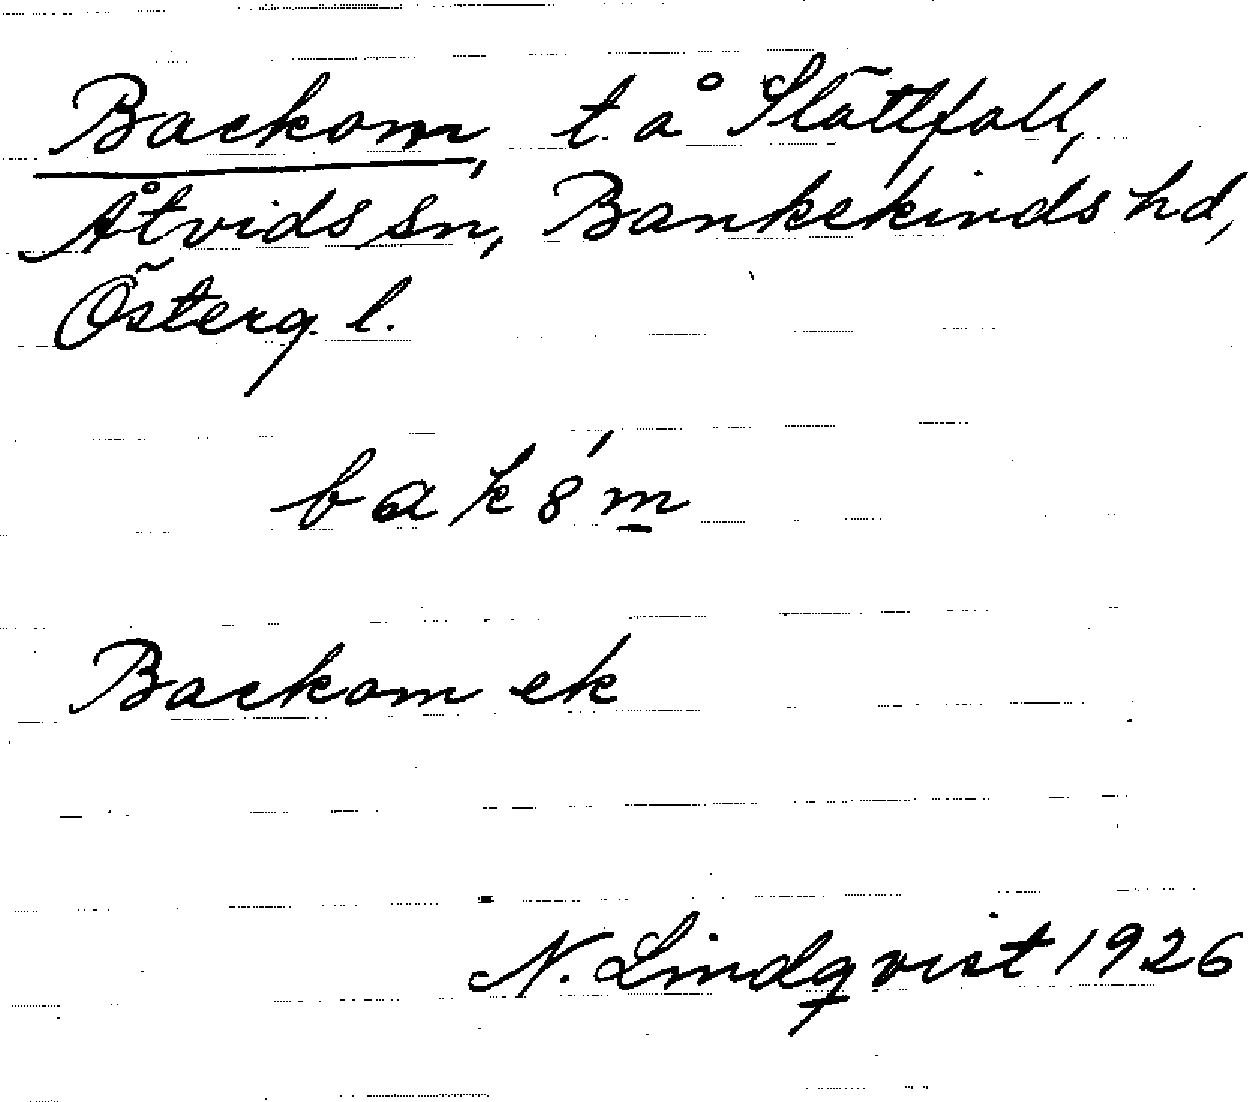 Backom, t. å Slättfall,
Åtvids sn, Bankekinds hd,
Österg. l.
bak8́m
Backom ek
N. Lindqvist 1926